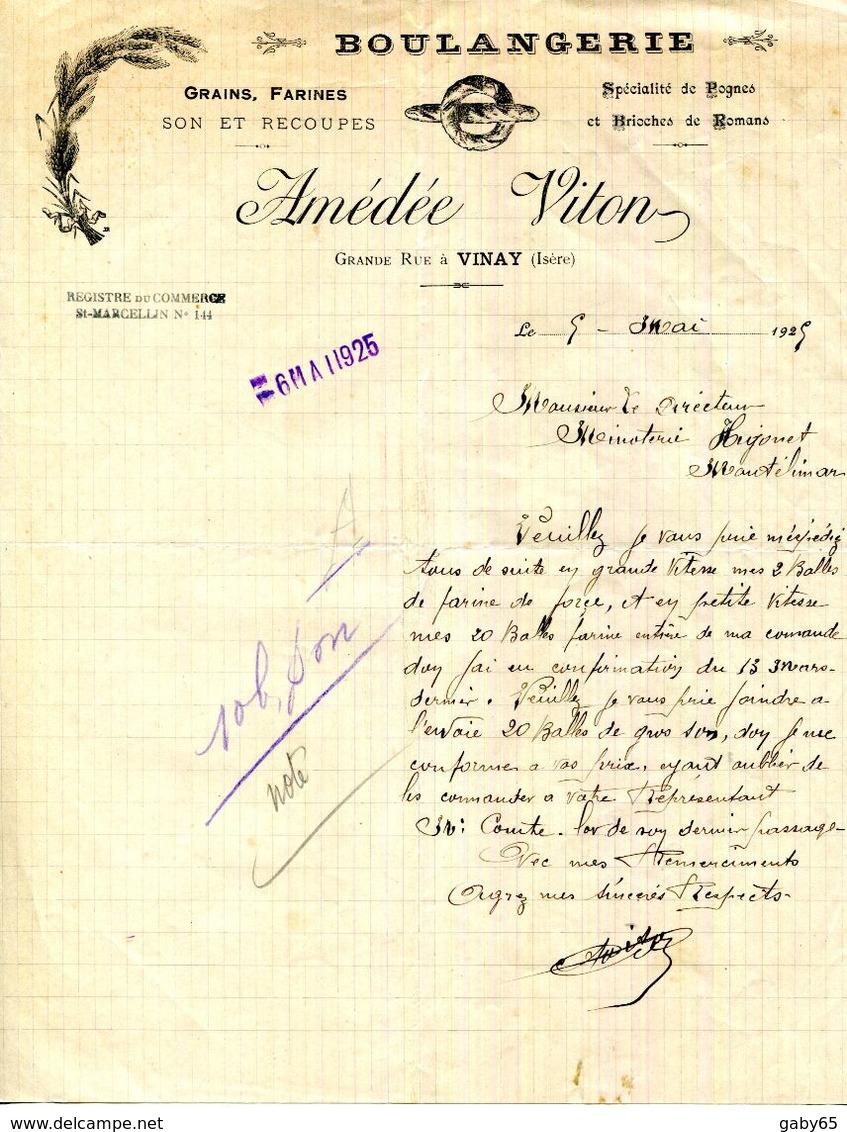 BOULANGERIE
GRAINS, FARINES
SON ET RECOUPES
Spécialité de Pognes
et Brioches de Romans
Amédée Viton
GRANDE RUE à VINAY (Isère)
REGISTRE DU COMMERCE
St-MARCELLIN No 144
Le 5 - Mai 1925
6 MAI 1925
Monsieur Le Directeur
Minoterie
Montélimar
Veuillez je vous prie m'éspédiez
tous de suite en grande Vitesse mes 2 Balles
de farine de force, et en petite vitesse
mes 20 Balles farine entière de ma comande
don jai eu confirmation du 13 Mars
dernier. Veuillez je vous prie joindre a
l'envoie 20 Balles de gros son, don je me
conforme a vos prix, eyant oublier de
les commander a votre Représentant
Mr: Comte. lor de son dernier passage-
Avec mes Remerciments
Agrez mes sincerés Respects-
10 b, son
note
gaby65